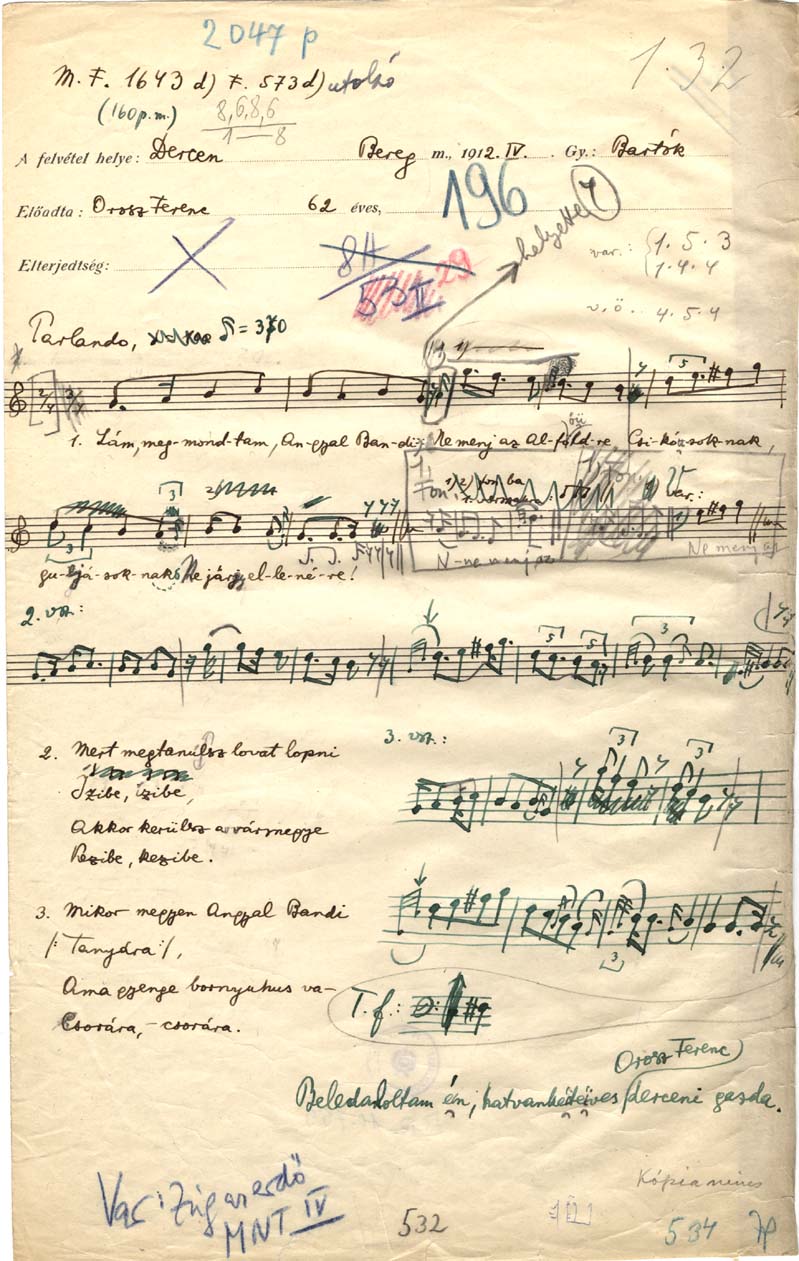 2047 p
1.32
M. F. 1643 d) F. 573 d) utolsó
(160 p.m.) 8,6,8,6
1—8
A felvétel helye: Dercen Bereg m., 1912. IV. Gy.: Bartók
Előadta: Orosz Ferenc 62 éves,
196
helyette 7
Elterjedtség:
8H
53 II
29
var.: 1. 5. 3
1. 4. 4
v.ö. 4. 5. 4
Parlando, = 370
1. Lám, meg-mond-tam, An-gyal Ban-di: Ne menj az Al-föld-re, Csi-kó-sok-nak,
Var.:
gu-jjá-sok-nak Ne járj el-le-né-re!
N-ne menj az
Ne menj az
2. vsz.:
2. Mert megtanulsz lovat lopni
3. vsz.:
Izibe, izibe,
Akkor kerülsz a vármegye
Kezibe, kezibe.
3. Mikor megyen Angyal Bandi
/: Tanyára :/,
Ama gyenge bornyuhus va-
Csorára, - csorára.
T. f.:
Orosz Ferenc
Beledaloltam én, hatvankétéves derceni gazda.
Var: Zúg az erdő
MNT IV
Kópia nincs
532
534